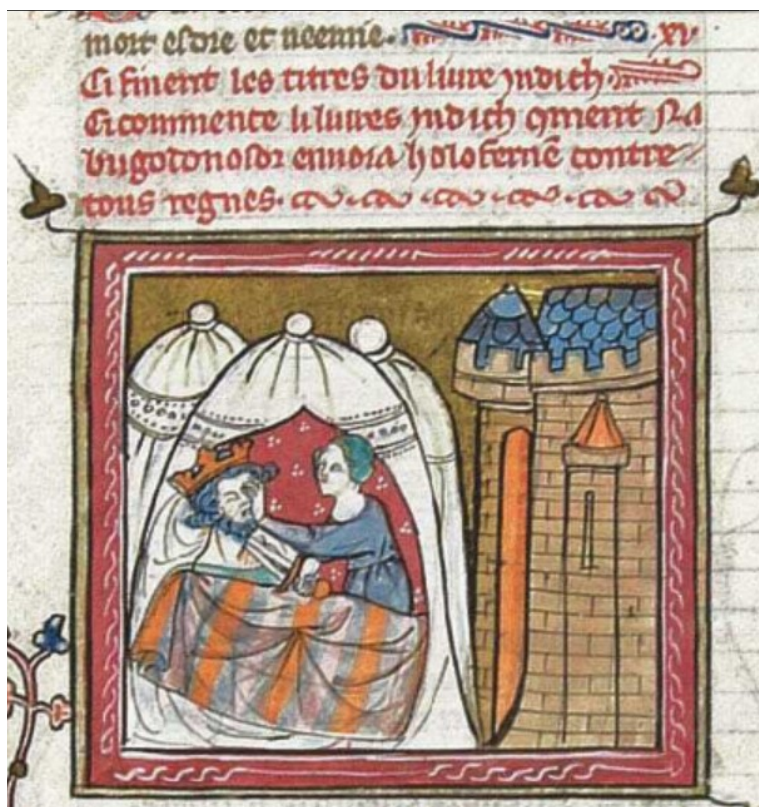 mort esdre et neemie. xv
Ci finent les titres du liure judich.
Ci commence li liures judich qment Na
bugodonosor enuoia holoferne contre
tous regnes.